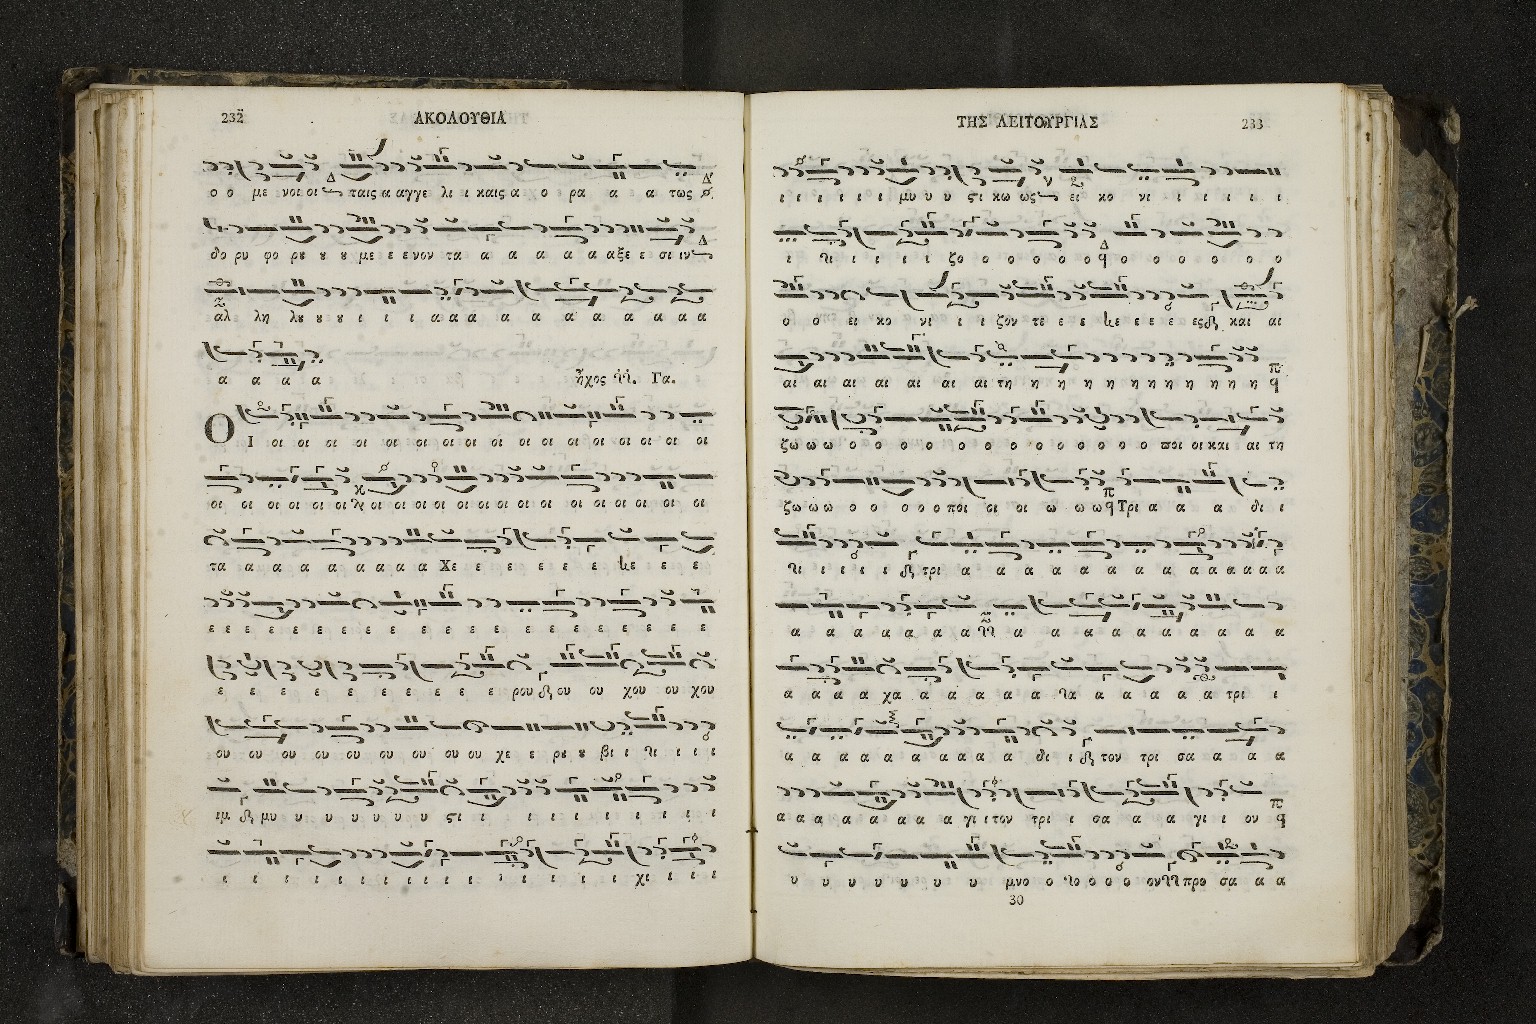 232
ΑΚΟΛΟΥΘΙΑ
ο ο με νοι οι ταις α αγγε λι ι καις α ο ρα α α τως
δο ρυ φο ρȣ ȣ ȣ με ε ε νον τα α α α α α α αξε ε σι ιν
αλ λη λȣ ȣ ȣ ȣ ι ι ι α α α α α α α α α α α
α α α α ἦχος Γα.
ΟΙ οι οι οι οι οι οι οι οι οι οι οι οι οι οι οι οι
οι οι οι οι οι οι οι οι οι οι οι οι οι οι οι οι οι οι οι οι
τα α α α α α α α Χε ε ε ε ε ε ε ε ε
ε ε ε ε ε ε ε ε ε ε ε ε ε ε ε ε ε ε ε
ε ε ε ε ε ε ε ε ε ε ρου ου ου χου ου χου
ου ου ου ου ου ου ου ου ου χε ε ρȣ ȣ βι ι ι ι ι
ιμ μυ υ υ υ υ υ υ ςι ι ι ι ι ι ι ι ι ι
ι ι ι ι ι ι ι ι ι ι ι ι ι ι ι χι ι ι ι
ΤΗΣ ΛΕΙΤΟΥΡΓΙΑΣ
233
ι ι ι ι ι ι μυ υ υ ςι κω ως ει κο νι ι ι ι ι ι
ι ι ι ι ι ζο ο ο ο ο ο ο ο ο ο ο ο ο
ο ο ει κο νι ι ι ζον τε ε ε ε ε ε ε ες και αι
αι αι αι αι αι αι αι τη η η η η η η η η η η
ζω ω ω ο ο ο ο ο ο ο ο ο ο ο ο ποι οι και αι τη
ζω ω ω ο ο ο ο ο ποι οι οι ω ω ω Τρι α α α δι ι
ι ι ι ι τρι α α α α α α α α α α α α
α α α α α α α α α α α α α α α α α
α α α α χα α α α α α α α α α α α τρι ι
α α α α α α α α α α δι ι τον τρι σα α α α
α α α α α α α α α γι ι τον τρι ι σα α α γι ι ον
υ υ υ υ υ υ υ μνο ο ο ο ο ον προ σα α α
30